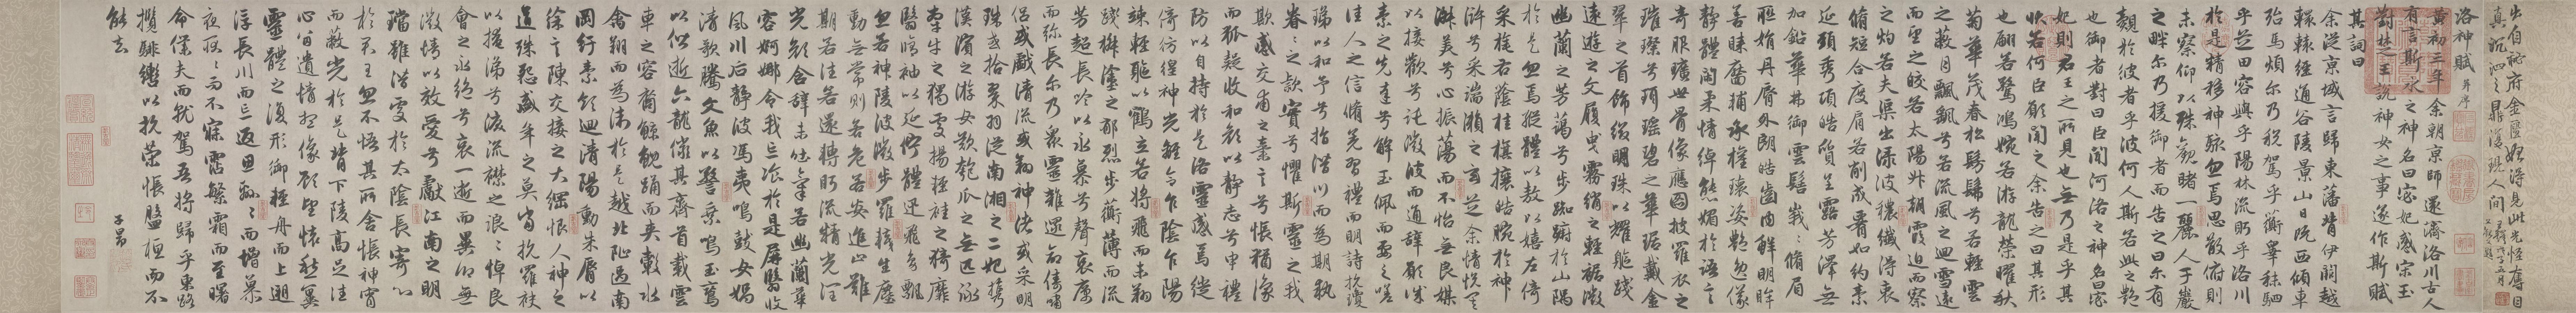 出自祕府金匱始得見此光怪奪目
真沉泗之鼎復現人間
洛神賦 并序
黃初三年余朝京師還濟洛川古人
有言斯水之神名曰宓妃感宋玉
對楚王說神女之事遂作斯賦
其詞曰
余從京域言歸東藩背伊闕越
轘轅經通谷陵景山日既西傾車
殆馬煩尔乃稅駕乎蘅皋秣駟
乎芝田容與乎陽林流眄乎洛川
於是精移神駭忽焉思散俯則
未察仰以殊觀睹一麗人于巖
之畔尔乃援御者而告之曰尔有
覿於彼者乎彼何人斯若此之艷
也御者對曰臣聞河洛之神名曰宓
妃則君王之所見也無乃是乎其
狀若何臣願聞之余告之曰其形
也翩若驚鴻婉若游龍榮曜秋
菊華茂春松髣髴兮若輕雲
之蔽月飄飖兮若流風之迴雪遠
而望之皎若太陽升朝霞迫而察
之灼若夫渠出淥波穠纖得衷
脩短合度肩若削成腰如約素
延頸秀項皓質呈露芳澤無
加鉛華弗御雲髻峩峩脩眉
聯娟丹脣外朗皓齒內鮮明眸
善睞靨輔承權瓌姿艷逸儀
靜體閑柔情綽態媚於語言
奇服曠世骨像應圖披羅衣之
璀璨兮珥瑤碧之華琚戴金
翠之首飾綴明珠以耀軀踐
遠遊之文履曳霧綃之輕裾微
幽蘭之芳藹兮步踟躕於山隅
於是忽焉縱體以遨以嬉左倚
采旄右蔭桂旗攘皓腕於神
滸兮采湍瀨之玄芝余情悅其
淑美兮心振蕩而不怡無良媒
以接歡兮託微波而通辭願誠
素之先達兮解玉佩而要之嗟
佳人之信脩羌習禮而明詩抗瓊
珶以和予兮指潛川而為期執
眷眷之款實兮懼斯靈之我
欺感交甫之棄言兮悵猶豫
而狐疑收和顏以靜志兮申禮
防以自持於是洛靈感焉徙
倚彷徨神光離合乍陰乍陽
竦輕軀以鶴立若將飛而未翔
踐椒塗之郁烈步蘅薄而流
芳超長吟以永慕兮聲哀厲
而彌長尔乃眾靈雜遝命儔嘯
侶或戲清流或翔神渚或采明
珠或拾翠羽從南湘之二妃攜
漢濱之游女歎匏瓜之無匹詠
牽牛之獨處揚輕袿之猗靡
翳脩袖以延佇體迅飛鳧飄
忽若神陵波微步羅襪生塵
動無常則若危若安進止難
期若往若還轉眄流精光潤
玉顏含辭未吐氣若幽蘭華
容婀娜令我忘飡於是屏翳收
風川后靜波馮夷鳴鼓女媧
清歌騰文魚以警乘鳴玉鸞
以偕逝六龍儼其齊首載雲
車之容裔鯨鯢踊而夾轂水
禽翔而為衛於是越北沚過南
岡紆素領迴清陽動朱脣以
徐言陳交接之大綱恨人神之
道殊怨盛年之莫當抗羅袂
以掩涕兮淚流襟之浪浪悼良
會之永絕兮哀一逝而異鄉無
微情以效愛兮獻江南之明
璫雖潛處於太陰長寄心
於君王忽不悟其所舍悵神宵
而蔽光於是背下陵高足往
心留遺情想像顧望懷愁冀
靈體之復形御輕舟而上遡
浮長川而忘返思綿綿而增慕
夜耿耿而不寐霑繁霜而至曙
命僕夫而就駕吾將歸乎東路
攬騑轡以抗策悵盤桓而不
能去
子昂